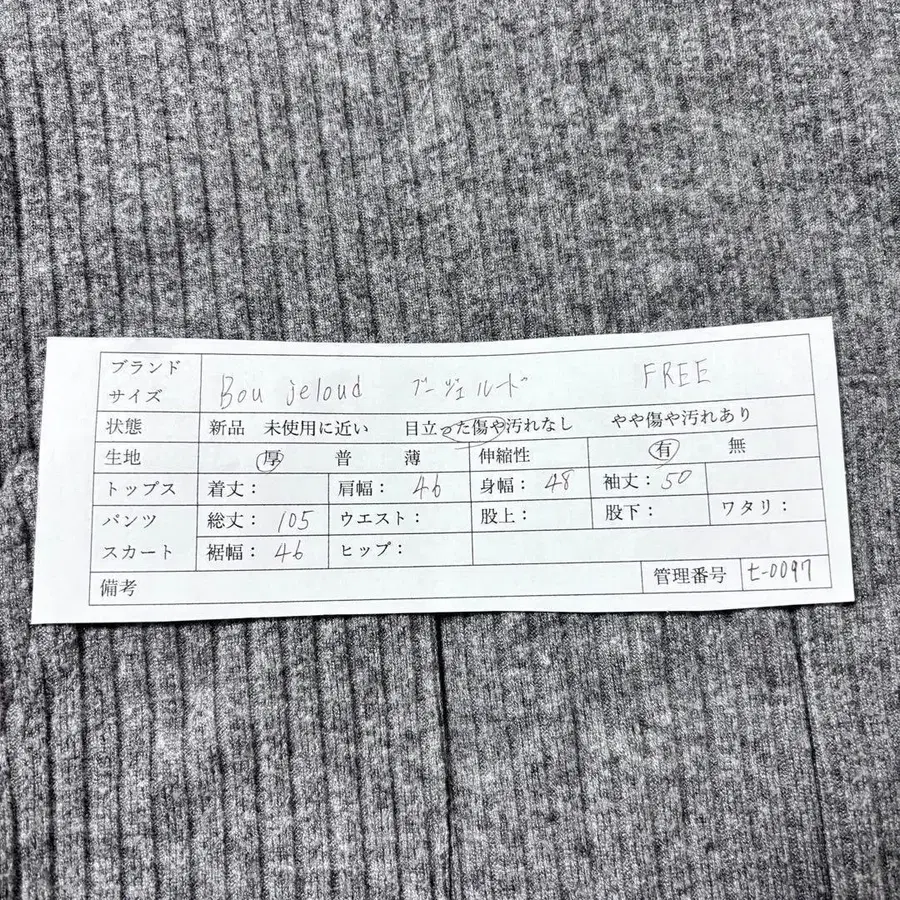 ブランド
サイズ Bou jeloud ブージェルード FREE
状態 新品 未使用に近い 目立った傷や汚れなし やや傷や汚れあり
生地 厚 普 薄 伸縮性 有 無
トップス 着丈： 肩幅： 46 身幅： 48 袖丈： 50
パンツ 総丈： 105 ウエスト： 股上： 股下： ワタリ：
スカート 裾幅： 46 ヒップ：
備考 管理番号 t-0097